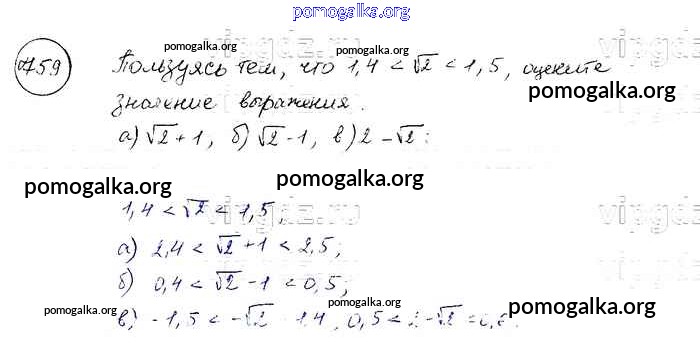 pomogalka.org
759
Пользуясь тем, что 1,4 < √2 < 1,5, оцените
значение выражения.
а) √2 + 1, б) √2 - 1, в) 2 - √2:
1,4 < √2 < 1,5;
а) 2,4 < √2 + 1 < 2,5;
б) 0,4 < √2 - 1 < 0,5;
в) -1,5 < -√2 -1,4, 0,5 < 2-√2
pomogalka.org
pomogalka.org
pomogalka.org
pomogalka.org
pomogalka.org
pomogalka.org
pomogalka.org
pomogalka.org
pomogalka.org
vipgdz.ru